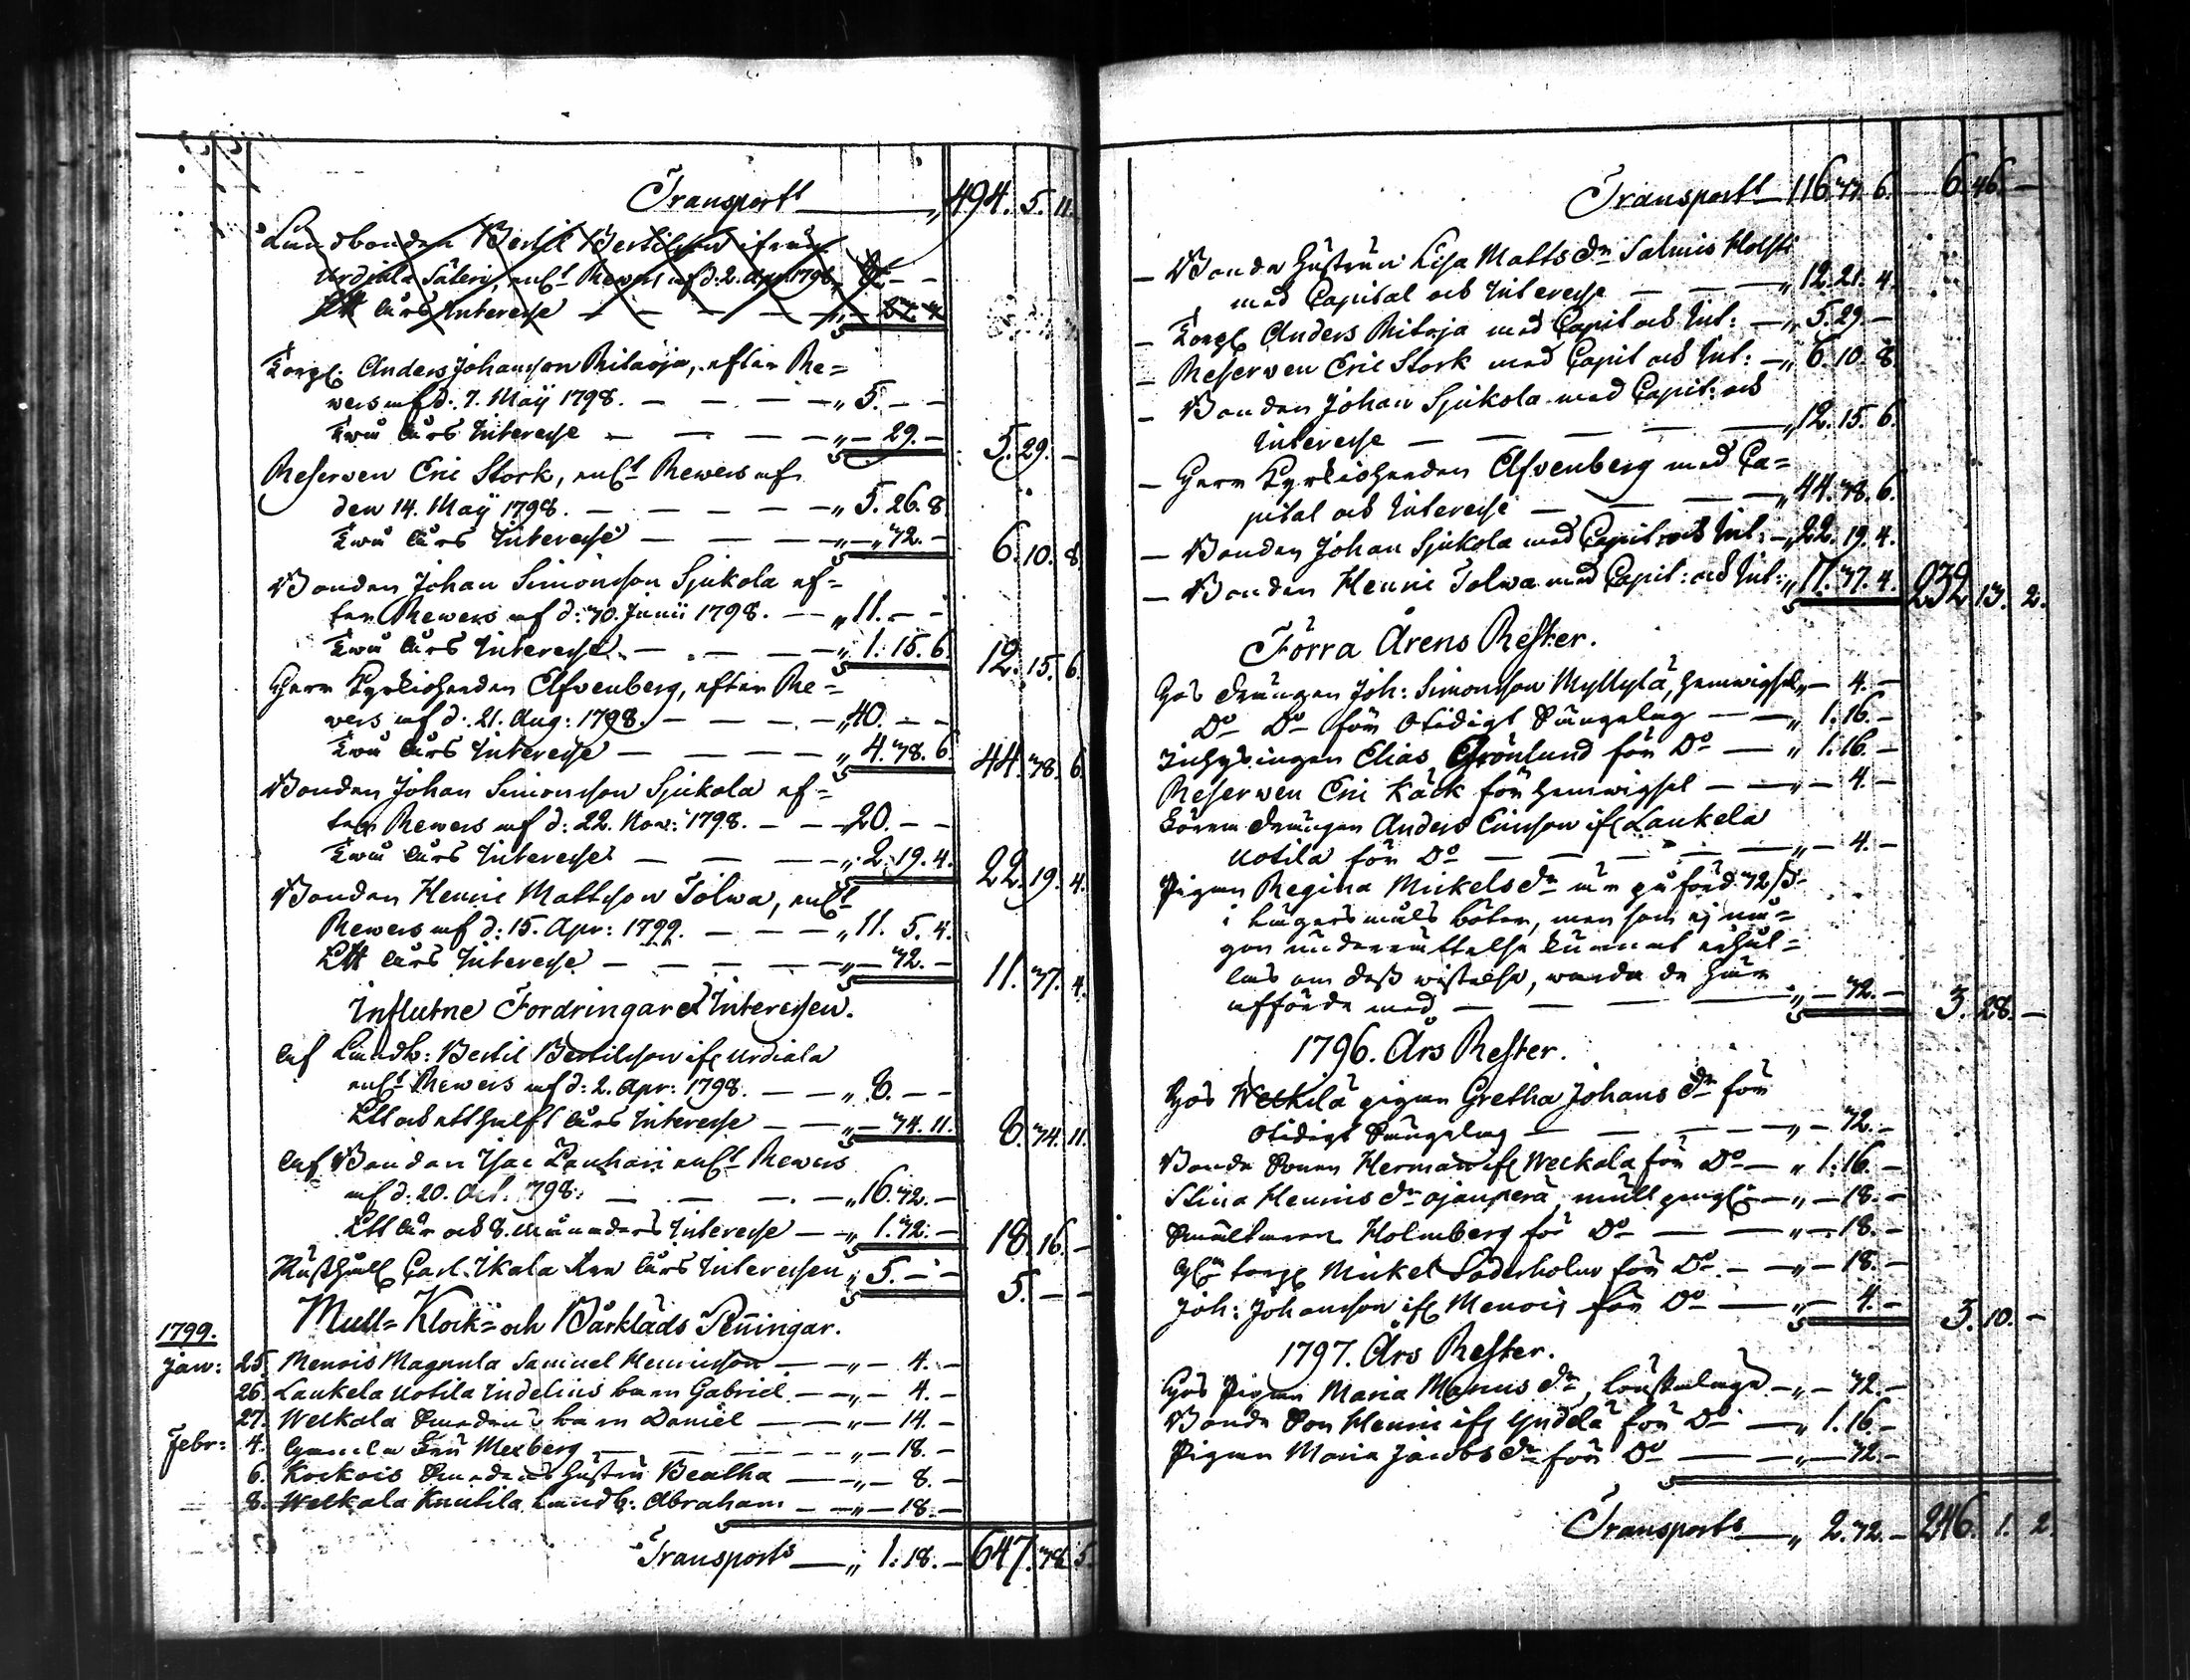 Transport — „ 494. 5. 11.
Landbonden Bertil Bertilsson ifrån
Urdiala Säteri, enl:t Revers af d: 2. Apr. 1798 „ 8. - -
Ett års Interesse — — — —
Torp: Anders Johansson Ritaoja, efter Re=
vers af d: 7. Maij 1798. — — — „ 5. - -
Twå års Interesse — — — „ - 29. - 5. 29. -
Reserven Eric Stork, enl:t Revers af
den 14. Maij 1798. — — — — „ 5. 26. 8.
Twå års Interesse — — — „ - 32. - 6. 10. 8.
Bonden Johan Simonsson Sjukola ef=
ter Revers af d: 30. Junii 1798. — „ 11. - -
Twå års Interesse — — — „ 1. 15. 6. 12. 15. 6.
Herr Kyrkioherden Elfvenberg, efter Re=
vers af d: 21. Aug: 1798. — — — „ 40. - -
Twå års Interesse — — — — „ 4. 38. 6. 44. 38. 6.
Bonden Johan Simonsson Sjukola ef=
ter Revers af d: 22. Nov: 1798. — — „ 20. - -
Twå års Interesse — — — „ 2. 19. 4. 22. 19. 4.
Bonden Henric Mattsson Tolwa, enl:t
Revers af d: 15. Apr: 1799. — — — „ 11. 5. 4.
Ett års Interesse — — — — „ - 32. - 11. 37. 4.
Influtne Fordringar et Interessen.
Af Landb: Bertil Bertilsson if: Urdiala
enl:t Revers af d: 2. Apr: 1798. — — „ 8. - -
Ett och ett halft års Interesse — — „ - 34. 11. 8. 34. 11.
Af Bonden Isac Lauhari enl:t Revers
af d. 20. Oct. 1798. — — — „ 16. 32. -
Ett år och 8. månaders Interesse — „ 1. 32. - 18. 16. -
Carl Ikala års Interessen „ 5. - - 5. - -
Mull= Klock= och Bårkläds Penningar.
1799.
Jan: 25. Menois Magnula Samuel Henricsson — „ - 4. -
26. Laukela Uotila Indelins barn Gabriel — „ - 4. -
27. Weckala Smedens barn Daniel — „ - 14. -
Febr: 4. Gamla Fru Mexberg — — — „ - 18. -
6. Kockois Smedens Hustru Beatha — „ - 8. -
8. Weckala Knutila Landb: Abraham — „ - 18. -
Transport — „ 1. 18. - 647. 38. 5.
Transport — 116. 37. 6. 6. 46. -
— Bonde Hustrun Lisa Matts Dr Salmis Holsti
med Capital och Interesse — — „ 12. 21. 4.
— Torp: Anders Ritaoja med Capit och Int: — „ 5. 29. -
— Reserven Eric Stork med Capit och Int: — „ 6. 10. 8.
— Bonden Johan Sjukola med Capit: och
Interesse — — — — „ 12. 15. 6.
— Herr Kyrkioherden Elfvenberg med Ca=
pital och Interesse — — — „ 44. 38. 6.
— Bonden Johan Sjukola med Capit: och Int: — „ 22. 19. 4.
— Bonden Henric Tolwa med Capit: och Int: „ 11. 37. 4. 232. 13. 2.
Förra Årens Rester.
Hos Drängen Joh: Simonsson Myllylä, hemvigsel „ - 4. -
Do Do för Otidigt Sängelag — — „ 1. 16. -
Inhysingen Elias Grönlund för Do — „ 1. 16. -
Reserven Eric Käck för hemvigsel — „ - 4. -
Drängen Anders Ericsson if: Laukela
Uotila för Do — — — — „ - 4. -
Pigan Regina Mickels Dr är påförd 32 ß
i Lägersmåls böter, men som ej nå=
gon underrättelse kunnat erhål=
las om dess vistelse, warda de här
afförde med — — — — „ - 32. - 3. 28. -
1796. Års Rester.
Hos Weckilä pigan Gretha Johans Dr för
Otidigt Sängelag — — — „ - 32. -
Bonde Sonen Herman if: Weckala för Do — „ 1. 16. -
Stina Henrics Dr Ojanperä, mull — „ - 18. -
Holmberg för Do — — „ - 18. -
Mickel Söderholm för Do — „ - 18. -
Joh: Johansson if: Menois för Do — „ - 4. - 3. 10. -
1797. Års Rester.
Hos Pigan Maria Manus Dr, — „ - 32. -
Bonde Son Henric if: Hyndelä för Do — „ 1. 16. -
Pigan Maria Jacobs Dr för Do — — „ - 32. -
Transport — „ 2. 32. - 246. 1. 2.